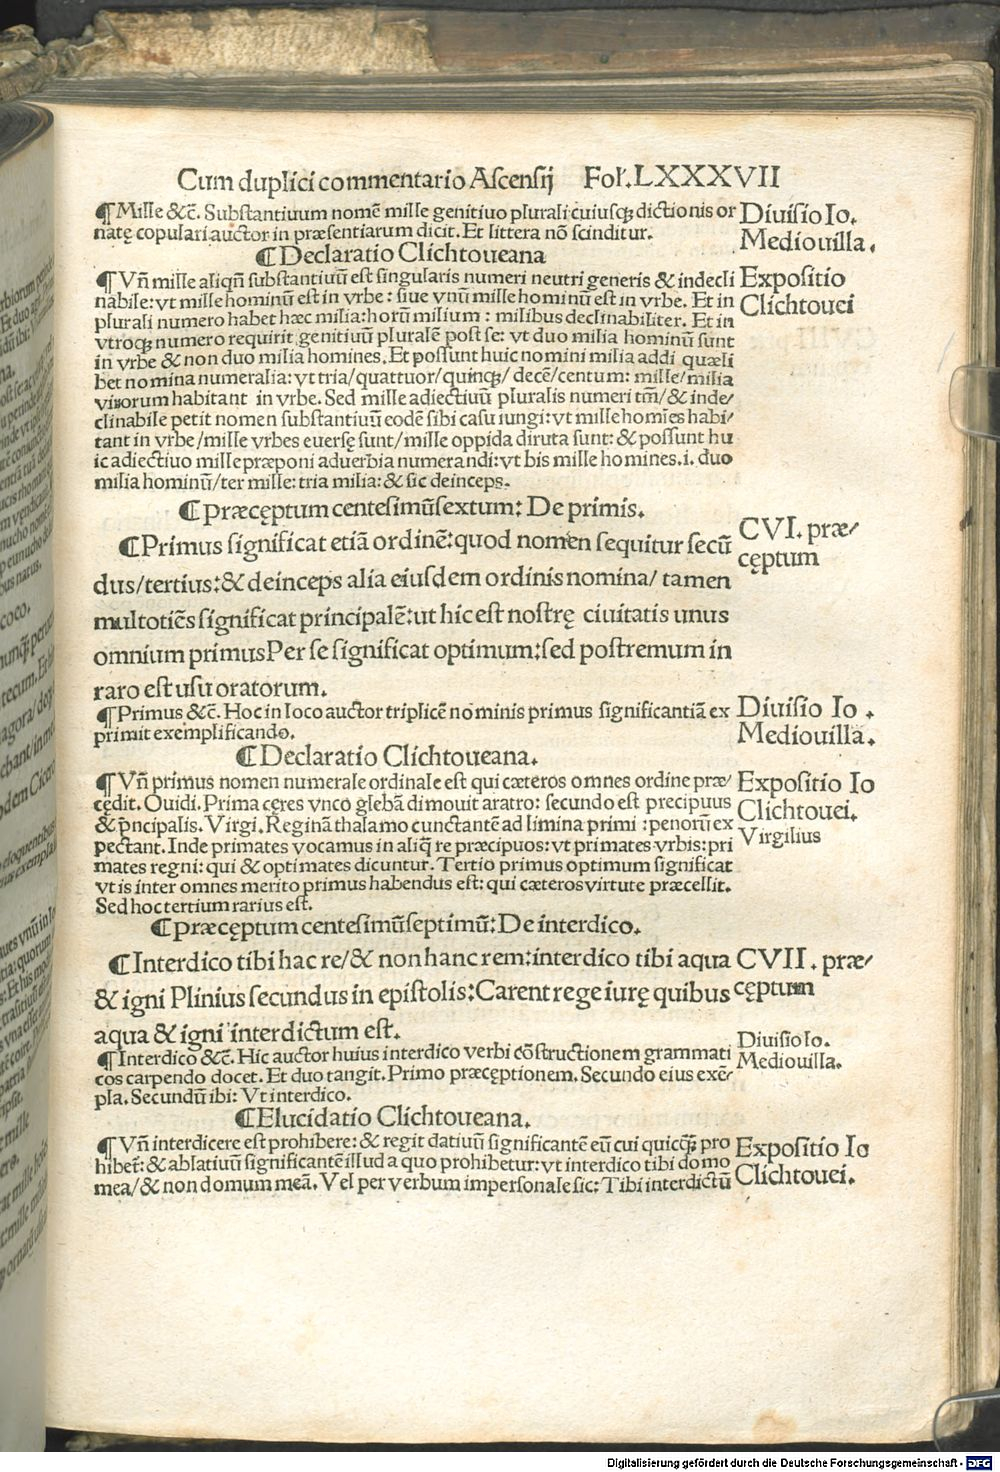 Cum duplici commentario Ascensij Fol.LXXXVII
¶Mille &c̃. Substantiuum nomẽ mille genitiuo plurali cuiusq; dictionis or
natę copulari auctor in præsentiarum dicit. Et littera nõ scinditur.
Diuisio Io.
Mediouilla.
¶Declaratio Clichtoueana
¶Vñ mille aliqñ substantiuũ est singularis numeri neutri generis & indecli
nabile: vt mille hominũ est in vrbe: siue vnũ mille hominũ est in vrbe. Et in
plurali numero habet hæc milia: horũ milium: milibus declinabiliter. Et in
vtroq; numero requirit genitiuũ pluralẽ post se: vt duo milia hominũ sunt
in vrbe & non duo milia homines. Et possunt huic nomini milia addi quæli
bet nomina numeralia: vt tria/quattuor/quinq;/ decẽ/centum: mille/milia
virorum habitant in vrbe. Sed mille adiectiuũ pluralis numeri tm̃/& inde/
clinabile petit nomen substantiuũ eodẽ sibi casu iungi: vt mille homĩes habi/
tant in vrbe/mille vrbes euersę sunt/mille oppida diruta sunt: & possunt hu
ic adiectiuo mille præponi aduerbia numerandi: vt bis mille homines.i. duo
milia hominũ/ter mille: tria milia: & sic deinceps.
Expositio
Clichtouei
¶præcęptum centesimũsextum: De primis.
¶Primus significat etiã ordinẽ: quod nomen sequitur secũ
dus/tertius: & deinceps alia eiusdem ordinis nomina/ tamen
multotiẽs significat principalẽ: ut hic est nostrę ciuitatis unus
omnium primusPer se significat optimum: sed postremum in
raro est usu oratorum.
CVI. præ/
cęptum
¶Primus &c̃. Hoc in loco auctor triplicẽ nominis primus significantiã ex
primit exemplificando.
Diuisio Io.
Mediouilla.
¶Declaratio Clichtoueana.
¶Vñ primus nomen numerale ordinale est qui cæteros omnes ordine præ/
cędit. Ouidi. Prima cęres vnco glebã dimouit aratro: secundo est precipuus
& p̃ncipalis. Virgi. Reginã thalamo cunctantẽ ad limina primi: penorũ ex
pectant. Inde primates vocamus in aliq̃ re præcipuos: vt primates vrbis: pri
mates regni: qui & optimates dicuntur. Tertio primus optimum significat
vt is inter omnes merito primus habendus est: qui cæteros virtute præcellit.
Sed hoc tertium rarius est.
Expositio Io
Clichtouei.
Virgilius
¶præcęptum centesimũseptimũ: De interdico.
¶Interdico tibi hac re/& non hanc rem: interdico tibi aqua
& igni Plinius secundus in epistolis: Carent rege iurę quibus
aqua & igni interdictum est.
CVII. præ/
cęptum
¶Interdico &c̃. Hic auctor huius interdico verbi cõstructionem grammati
cos carpendo docet. Et duo tangit. Primo præcęptionem. Secundo eius exẽ/
pla. Secundũ ibi: Vt interdico.
Diuisio Io.
Mediouilla.
¶Elucidatio Clichtoueana.
¶Vñ interdicere est prohibere: & regit datiuũ significantẽ eũ cui quicq; pro
hibet̃: & ablatiuũ significantẽ illud a quo prohibetur: vt interdico tibi domo
mea/& non domum meã. Vel per verbum impersonale sic: Tibi interdictũ
Expositio Io
Clichtouei.
Digitalisierung gefördert durch die Deutsche Forschungsgemeinschaft - DFG